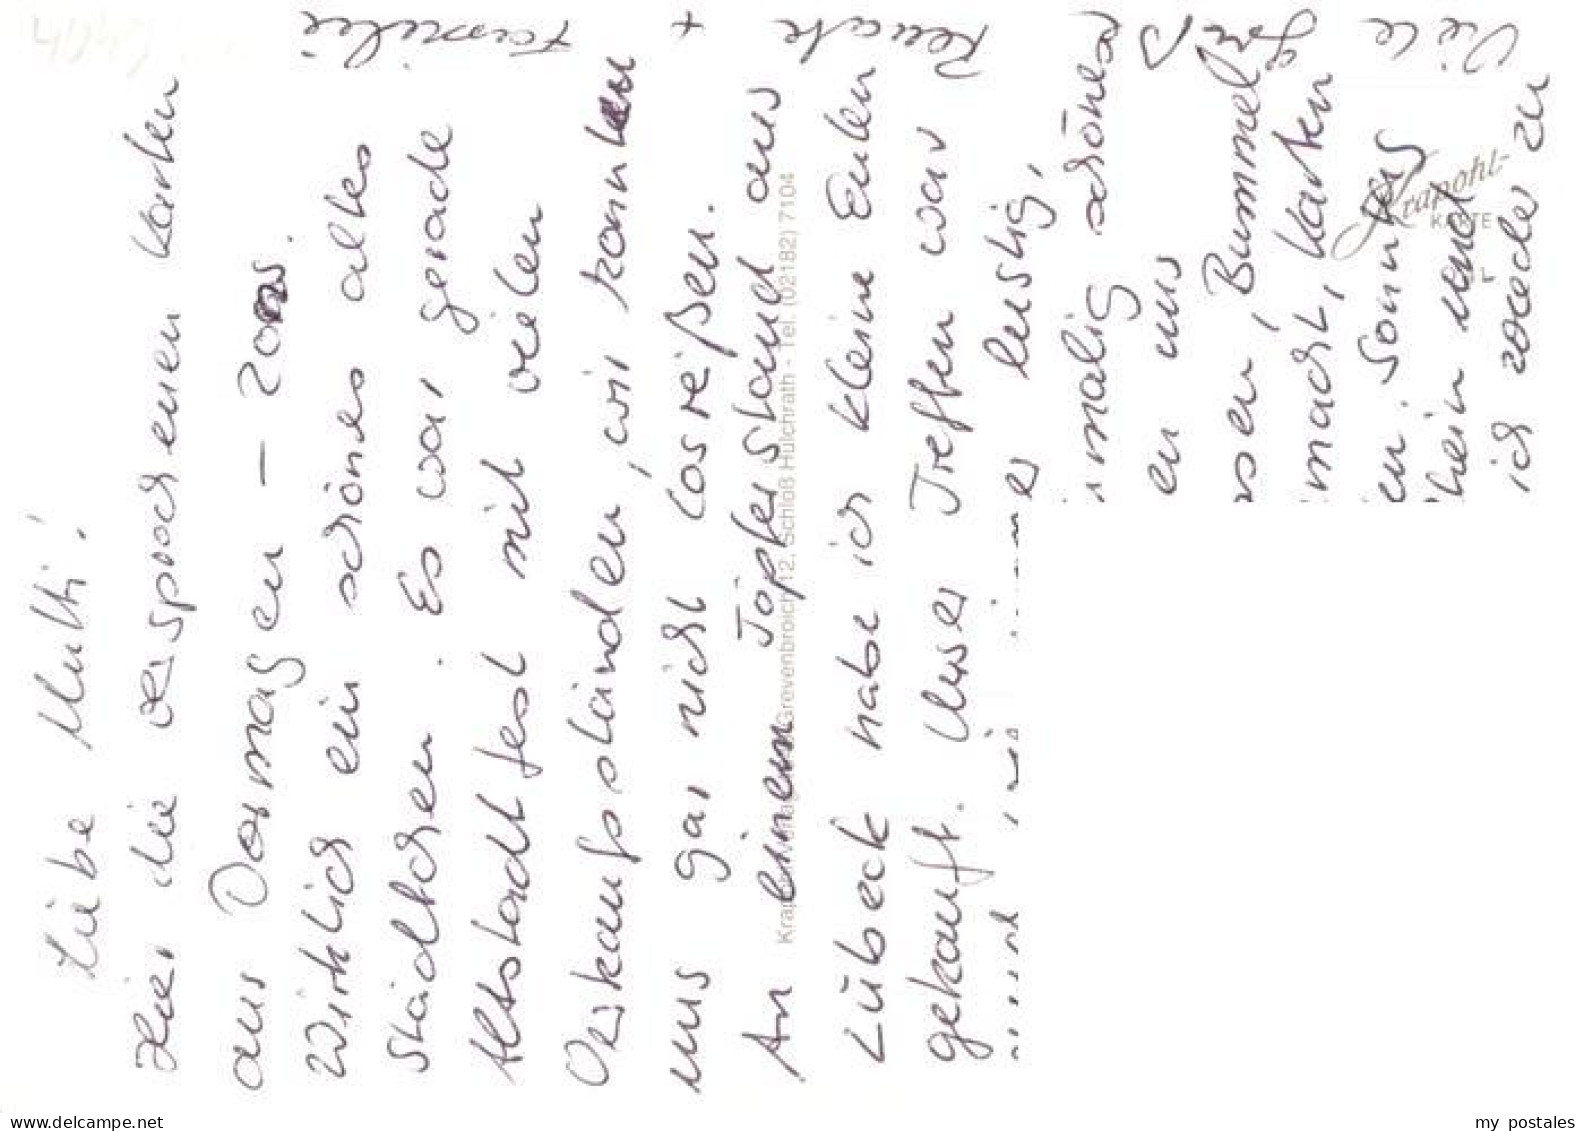 Liebe Mutti!
Hier die versprochenen Karten
aus Dormagen - Zons.
Wirklich ein schönes altes
Städtchen. Es war gerade
Altstadtfest mit vielen
Verkaufsständen, wir konnten
uns gar nicht losreißen.
An einem Töpferstand aus
Lübeck habe ich kleine Eulen
gekauft. Unser Treffen war
lustig,
imalig schönes
en uns
sen, Bummel
macht, Karten
en. Sonntag
hein und
ich wieder zu
Viele
Grüße
Renate
+
Familie
Krapohl-Verlag, Grevenbroich 12, Schloß Hülchrath - Tel. (02182) 7104
Krapohl-
KARTE
www.delcampe.net
my_postales